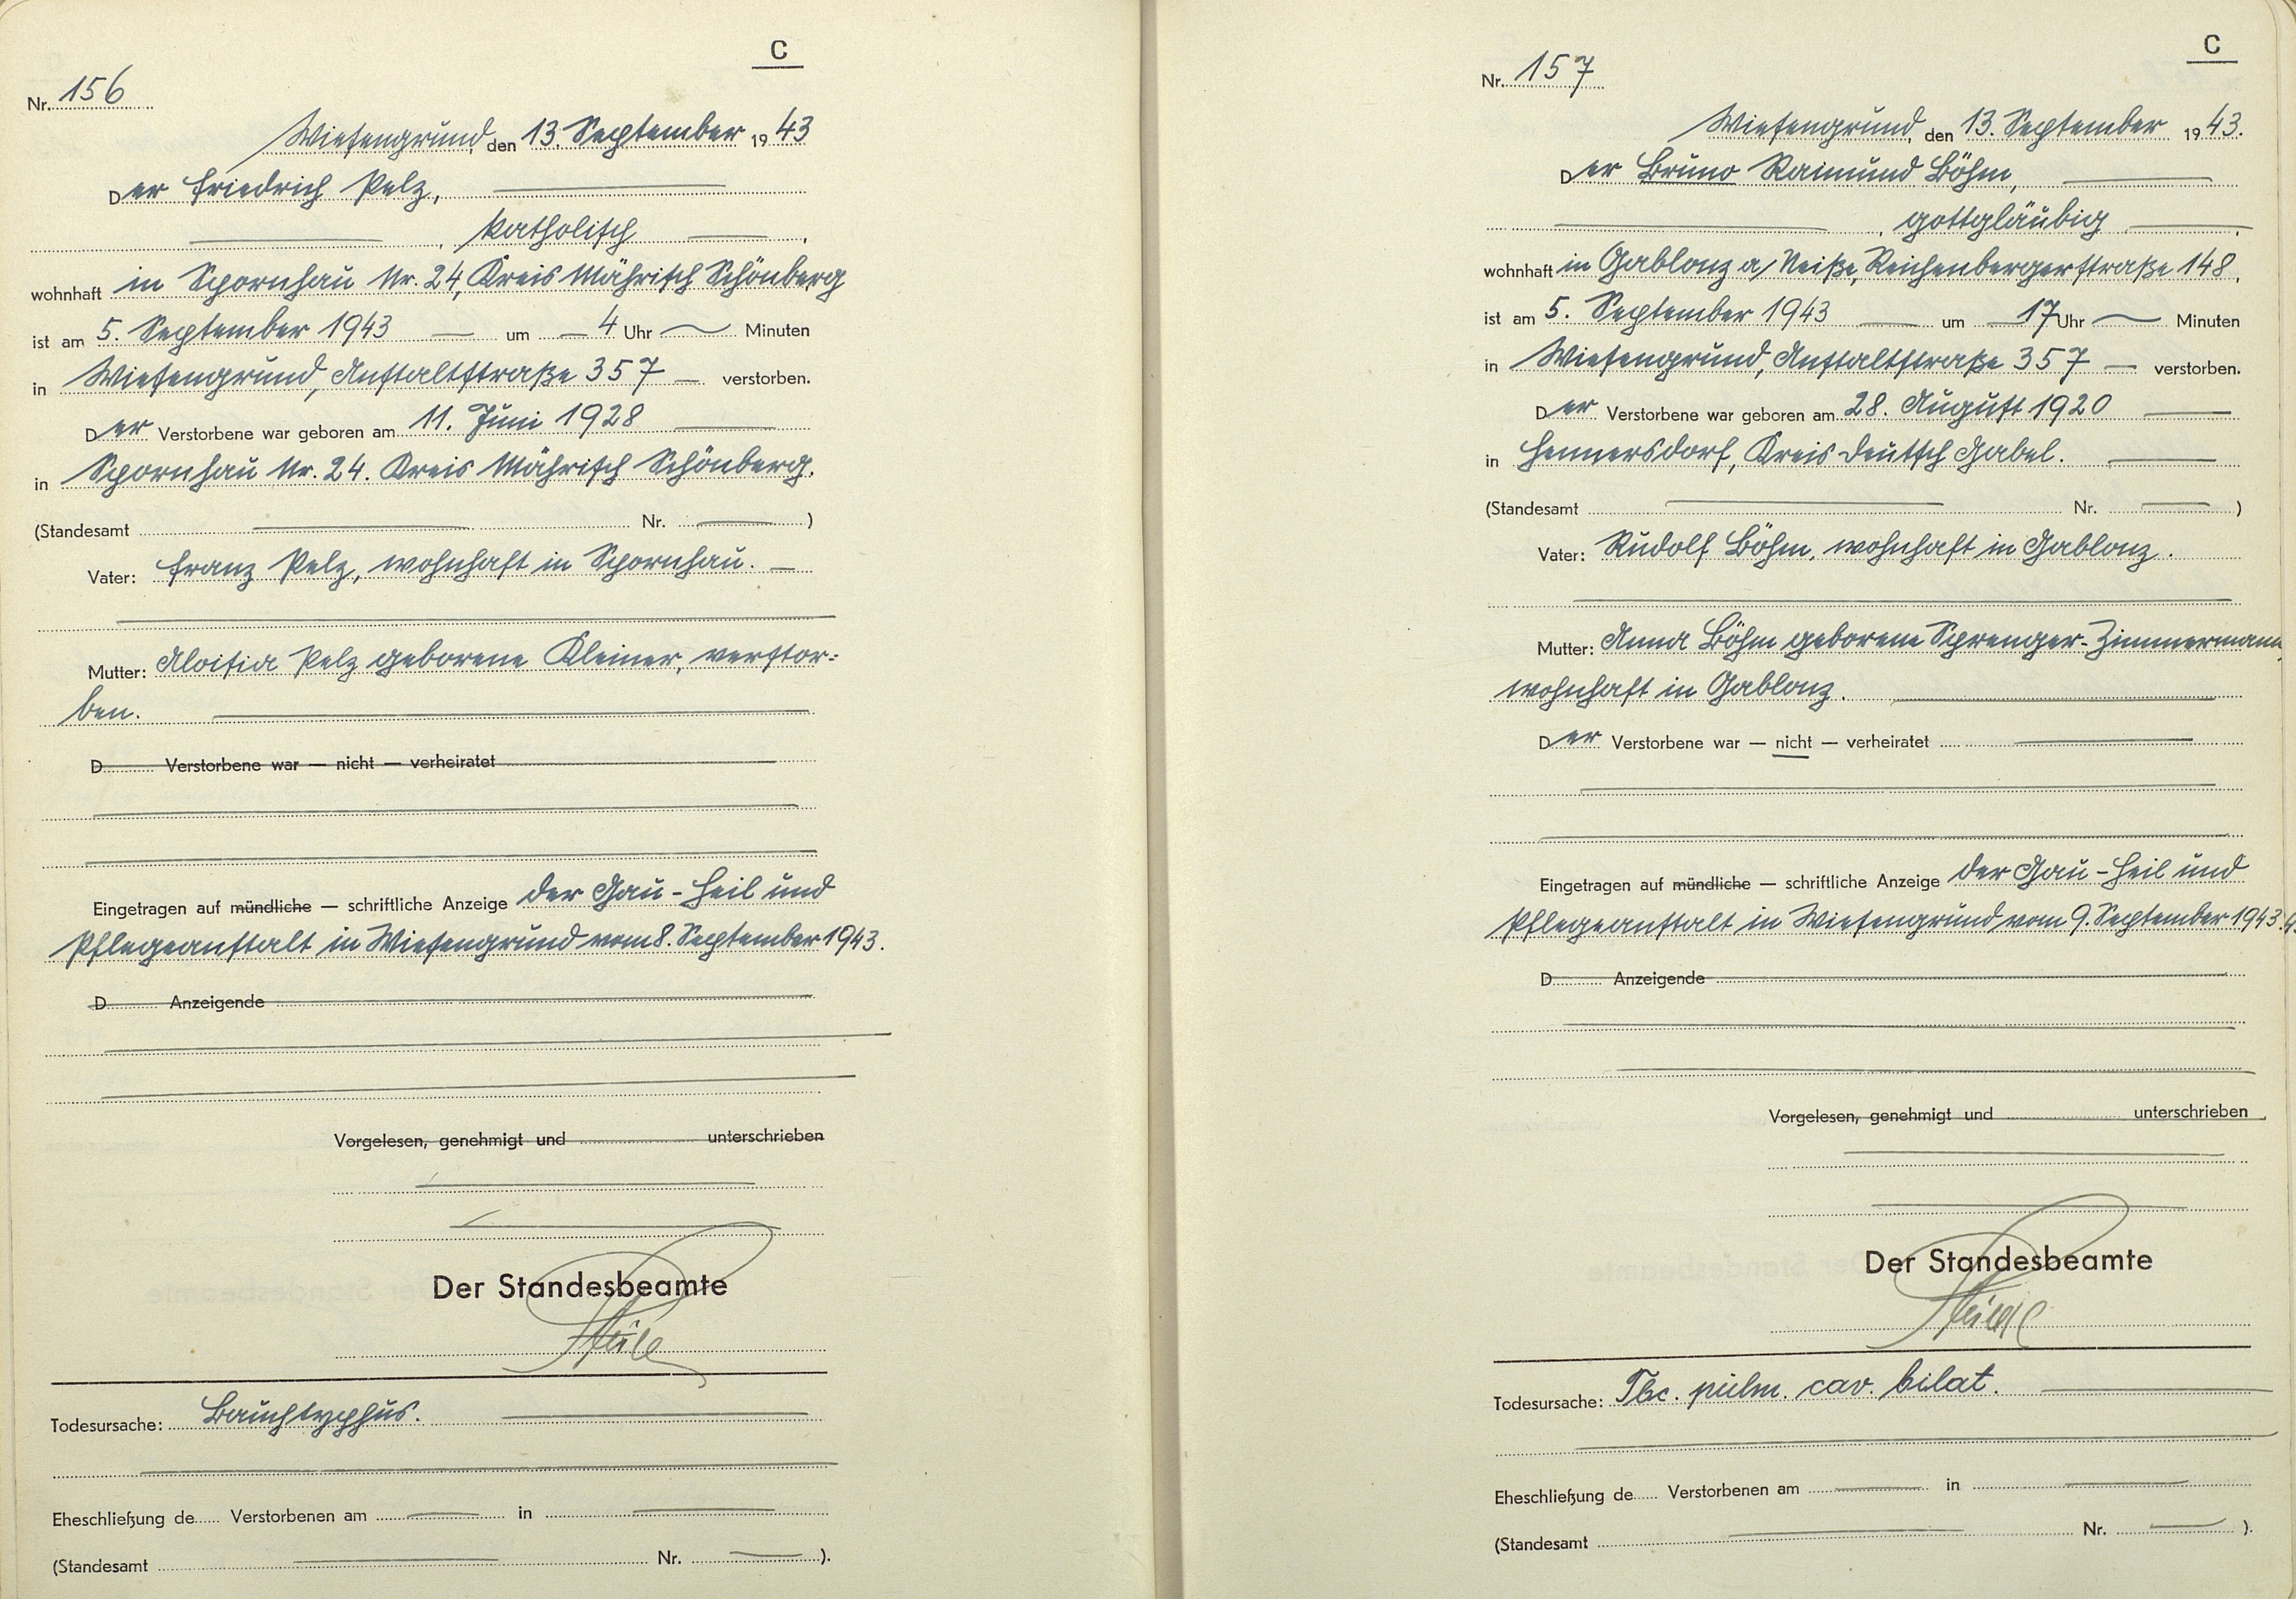 C
Nr. 156
Wiesengrund, den 13. September 1943
Der Friedrich Pelz,
, katholisch ,
wohnhaft in Spornhau Nr. 24, Kreis Mährisch Schönberg
ist am 5. September 1943 um 4 Uhr Minuten
in Wiesengrund, Anstaltstraße 357 verstorben.
Der Verstorbene war geboren am 11. Juni 1928
in Spornhau Nr. 24. Kreis Mährisch Schönberg.
(Standesamt Nr. )
Vater: Franz Pelz, wohnhaft in Spornhau.
Mutter: Aloisia Pelz geborene Kleiner, verstor=
ben.
D Verstorbene war — nicht — verheiratet
Eingetragen auf mündliche — schriftliche Anzeige der Gau-Heil und
Pflegeanstalt in Wiesengrund vom 8. September 1943.
D Anzeigende
Vorgelesen, genehmigt und unterschrieben
Der Standesbeamte
Todesursache: Bauchtyphus.
Eheschließung de Verstorbenen am in
(Standesamt Nr. ).
C
Nr. 157
Wiesengrund, den 13. September 1943.
Der Bruno Raimund Böhm,
, gottgläubig ,
wohnhaft in Gablonz a/Neiße, Reichenbergerstraße 148,
ist am 5. September 1943 um 17 Uhr Minuten
in Wiesengrund, Anstaltstraße 357 verstorben.
Der Verstorbene war geboren am 28. August 1920
in Hennersdorf, Kreis Deutsch Gabel.
(Standesamt Nr. )
Vater: Rudolf Böhm, wohnhaft in Gablonz.
Mutter: Anna Böhm geborene Sprenger-Zimmermann,
wohnhaft in Gablonz.
Der Verstorbene war — nicht — verheiratet
Eingetragen auf mündliche — schriftliche Anzeige der Gau-Heil und
Pflegeanstalt in Wiesengrund vom 9. September 1943.
D Anzeigende
Vorgelesen, genehmigt und unterschrieben
Der Standesbeamte
Todesursache: Tbc. pulm. cav. bilat.
Eheschließung de Verstorbenen am in
(Standesamt Nr. ).